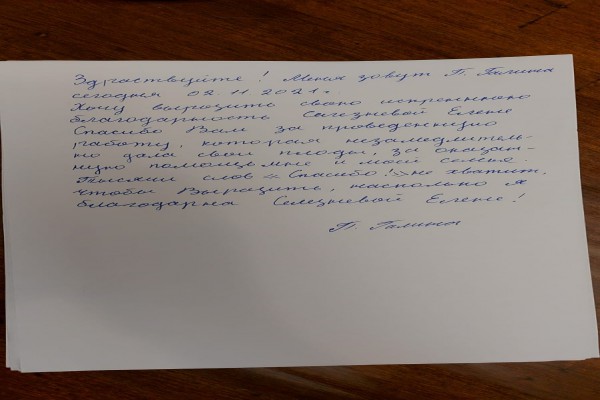 Здраствуйте! Меня зовут П. Галина
сегодня 02.11.2021г.
Хочу выразить свою искреннюю
благодарность Селезневой Елене
Спасибо Вам за проведенную
работу, которая незамедлитель-
но дала свои плоды, за оказан-
ную помощь мне и моей семье.
Тысячи слов «Спасибо!» не хватит,
чтобы выразить, насколько я
благодарна Селезневой Елене!
П. Галина